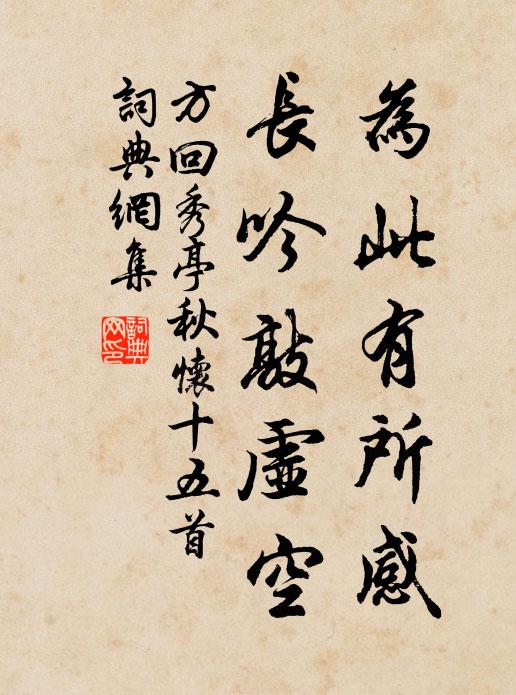 為此有所感
長吟敲虛空
方回秀亭秋懷十五首
詞典網集
詞典
网印